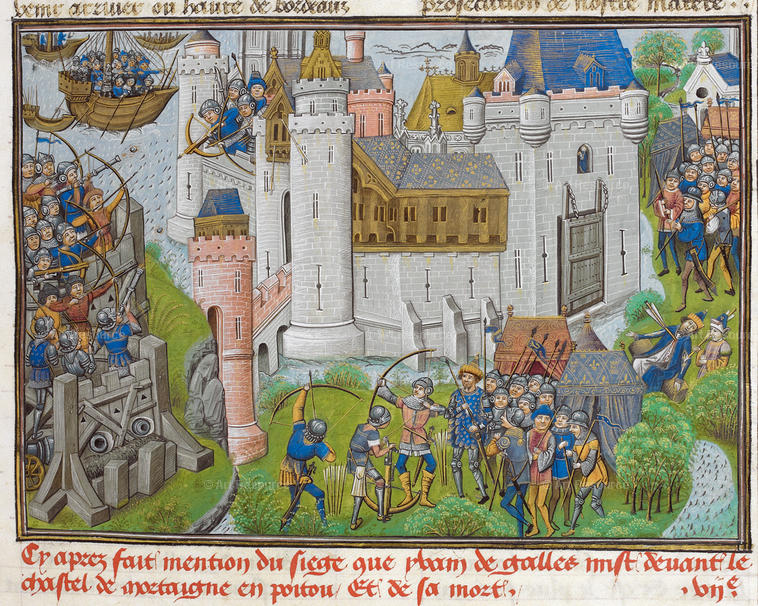 venir arriver ou havre de bordeaux
prosecution de nostre matere . .
Cy aprez fait mention du siege que yvain de galles mist devant le
chastel de mortaigne en poitou / Et de sa mort . . vije